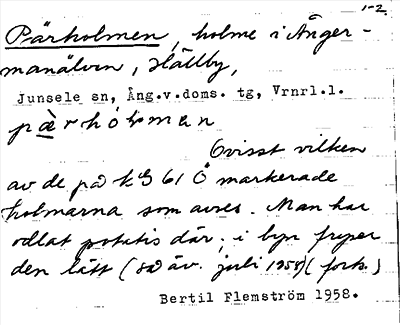 1-2.
Pärholmen, holme i Ånger-
manälven, Hällby,
Junsele sn, Ång.v.doms. tg, Vrnrl.l.
pæ̀rhólman
Ovisst vilken
av de på kG 61 Ö markerade
holmarna som avses. Man har
odlat potatis där; i byn fryser
den lätt (så äv. juli 1958) (forts.)
Bertil Flemström 1958.